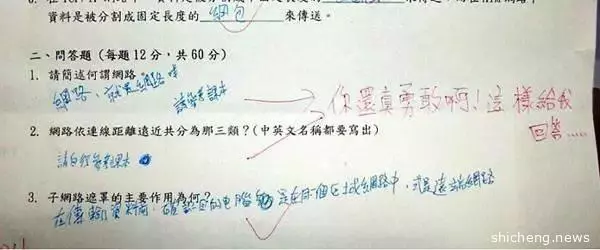 資料是被分割成固定長度的 網包 來傳送。
二、問答題 (每題12分，共60分)
1. 請簡述何謂網路
網路、就是網路咩
請參考課本
你還真勇敢啊！這樣給我
回答.....
2. 網路依連線距離遠近共分為那三類？(中英文名稱都要寫出)
請自行參考課本
3. 子網路遮罩的主要作用為何？
在傳輸資料前，的電腦是在同一個區域網路中，或是遠端網路
shicheng.news